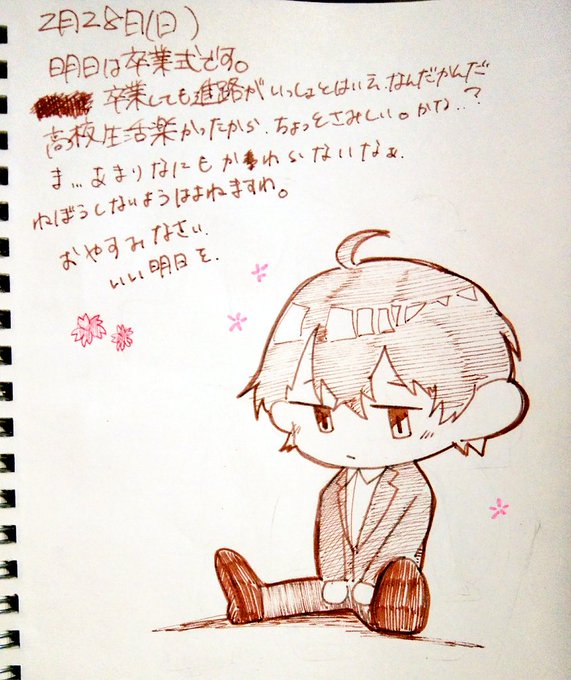 2月28日(日)
明日は卒業式です。
卒業しても進路がいっしょとはいえ、なんだかんだ
高校生活楽かったから、ちょっとさみしい。かな..?
ま... あまりなにもかわらないなぁ.
ねぼうしないようはよねますわ。
おやすみなさい.
いい明日を.